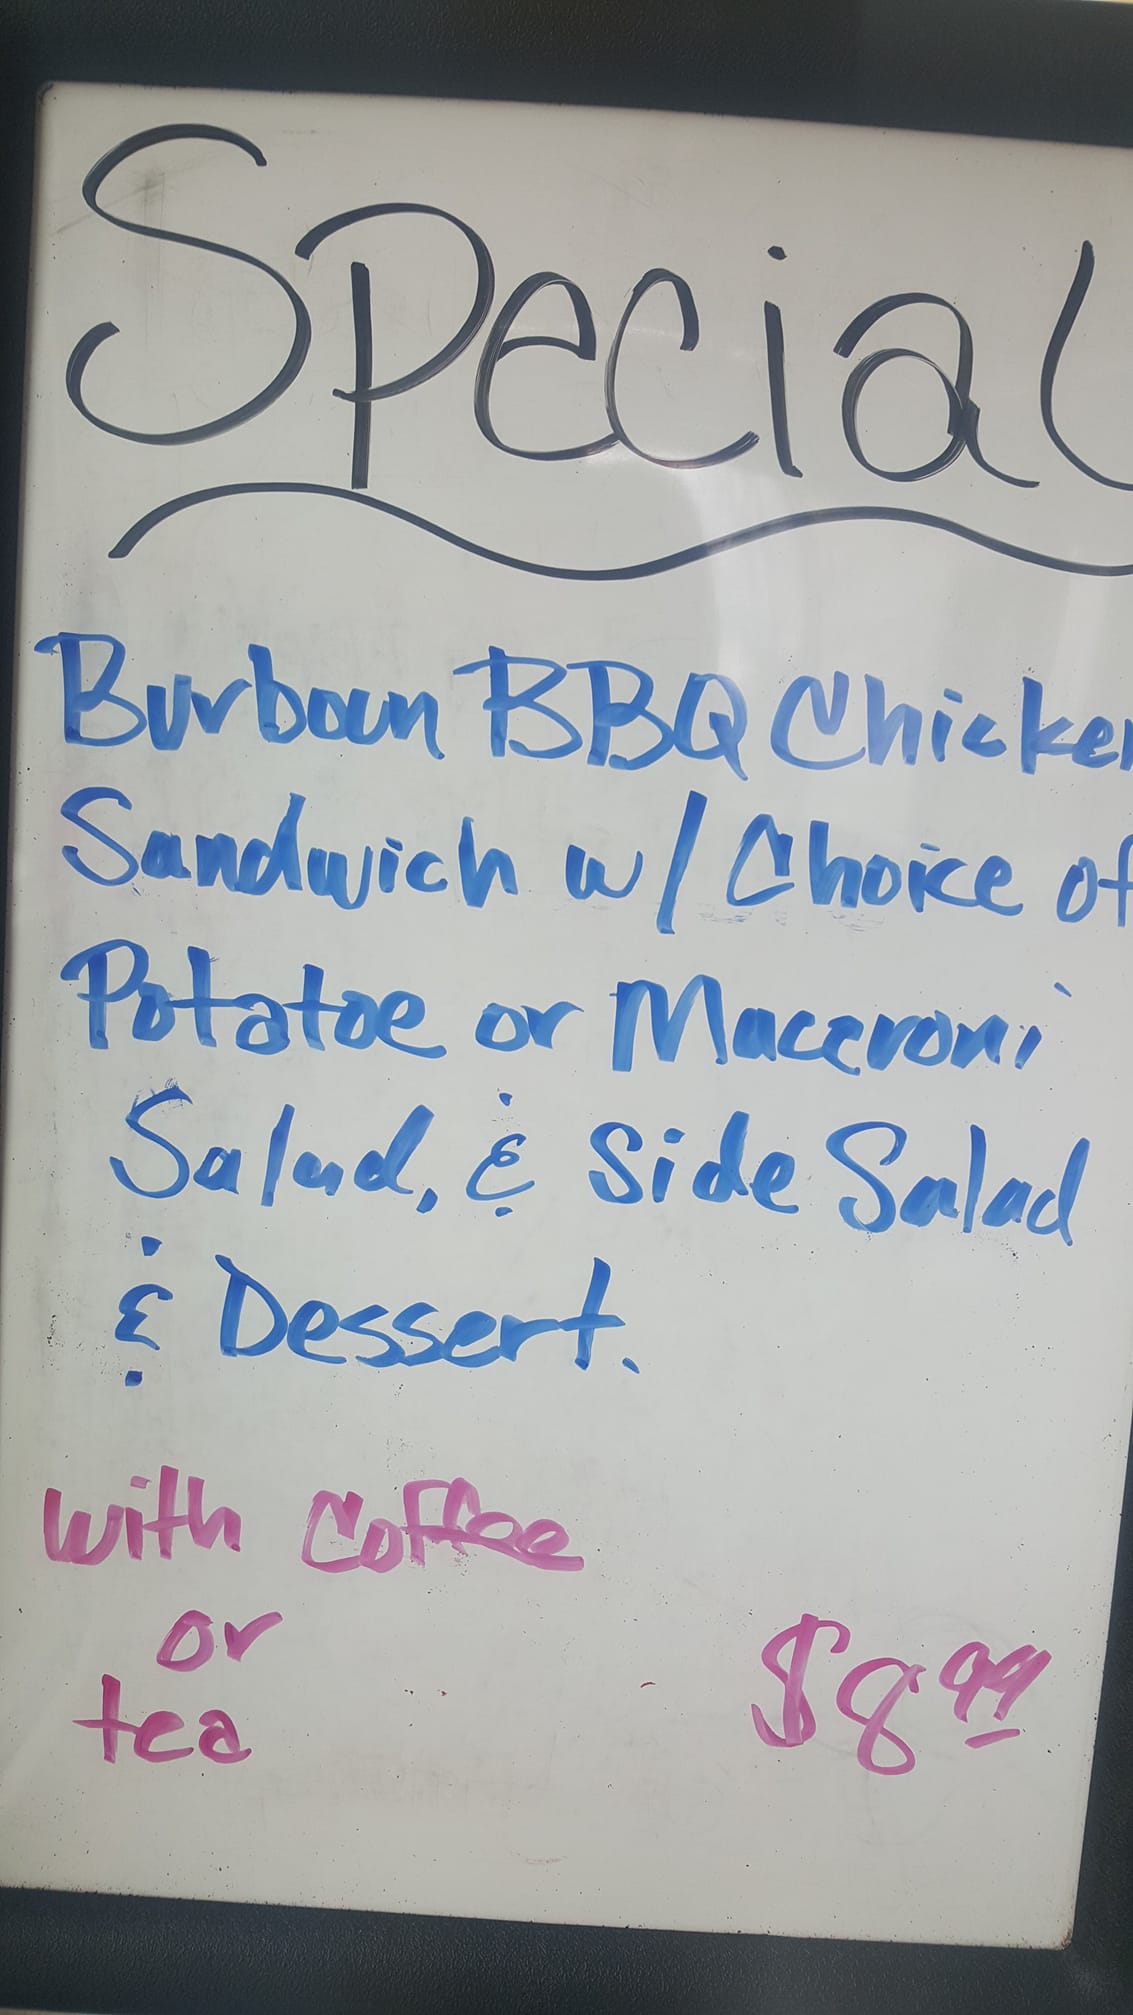 Special
Burboun BBQ Chicken
Sandwich w/ Choice of
Potatoe or Maceroni
Salad, & Side Salad
& Dessert.
with Coffee
or
tea
$8.99